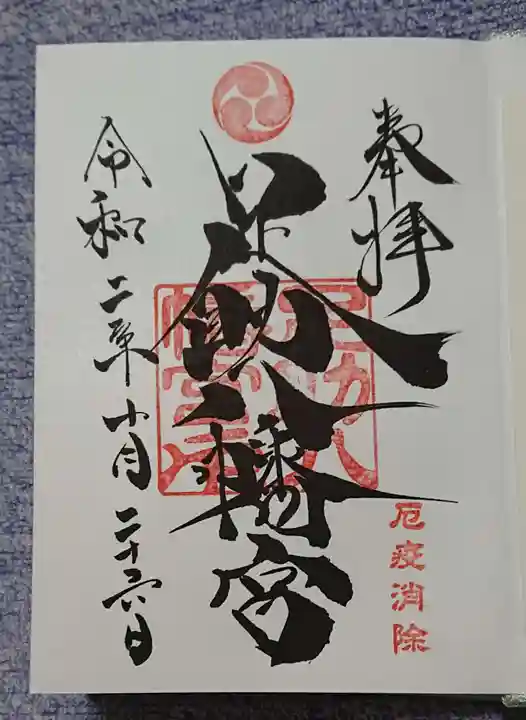 奉拝
足助八幡宮
厄疫消除
令和二年十月二十六日